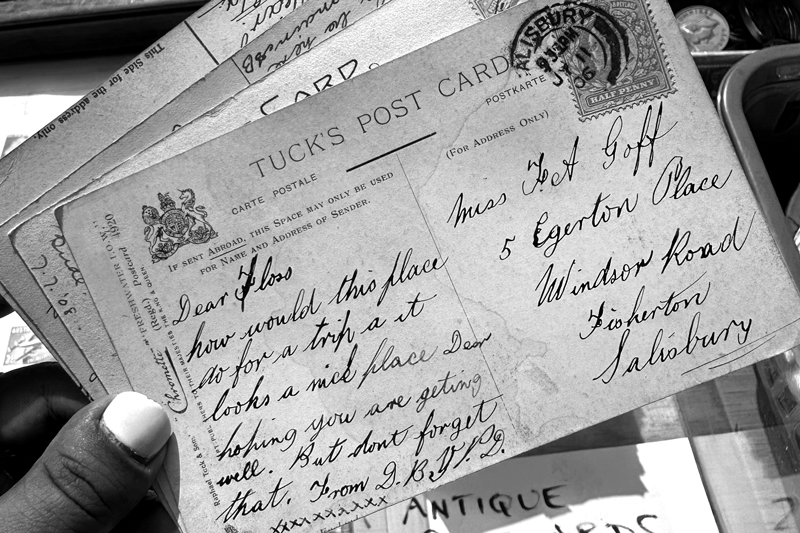 This Side for the address only.
CARD
TUCK'S POST CARD
CARTE POSTALE
POSTKARTE
(FOR ADDRESS ONLY)
IF SENT ABROAD, THIS SPACE MAY ONLY BE USED
FOR NAME AND ADDRESS OF SENDER.
SALISBURY
JY 11
06
HALF PENNY
Dear Floss
how would this place
do for a trip a it
looks a nick place Dear
hoping you are geting
well. But dont forget
that. From D.B.Y.P.D.
xxxxxxxxxx
Miss F A Goff
5 Egerton Place
Windsor Road
Fisherton
Salisbury
"FRESHWATER I.O.W."
(Regd.) Postcard 4920
ANTIQUE